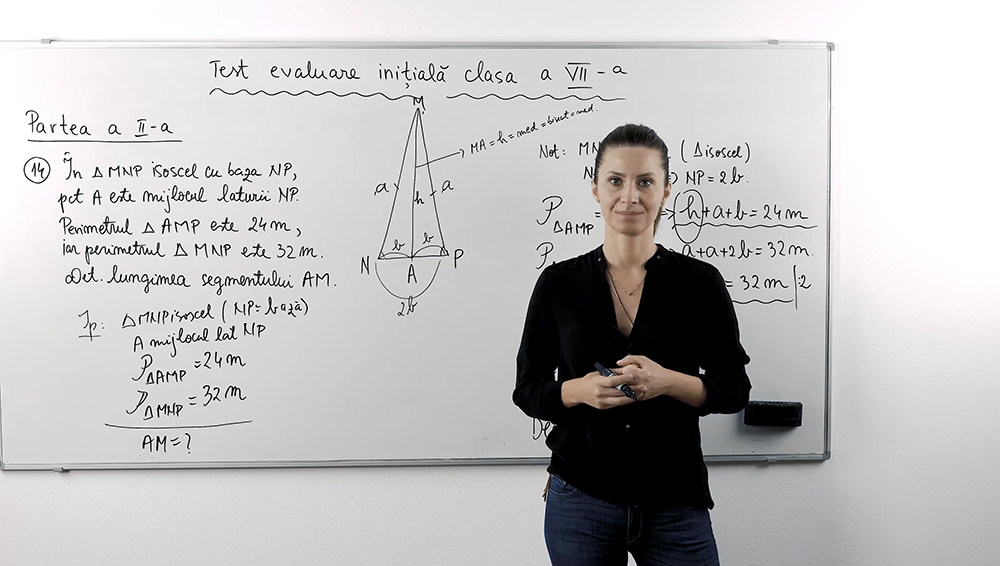 Test evaluare inițială clasa a VII-a
Partea a II-a
14 În △MNP isoscel cu baza NP,
pct A este mijlocul laturii NP.
Perimetrul △AMP este 24 m,
iar perimetrul △MNP este 32 m.
Det. lungimea segmentului AM.
Ip: △MNP isoscel (NP = bază)
A mijlocul lat NP
P△AMP = 24 m
P△MNP = 32 m
AM = ?
M
MA = h = med = bisect = med.
a
a
h
b
b
N
A
P
2b
Not: MN (△isoscel)
N ⇒ NP = 2b.
P△AMP = h + a + b = 24 m
P a + a + 2b = 32 m
= 32 m | :2
De